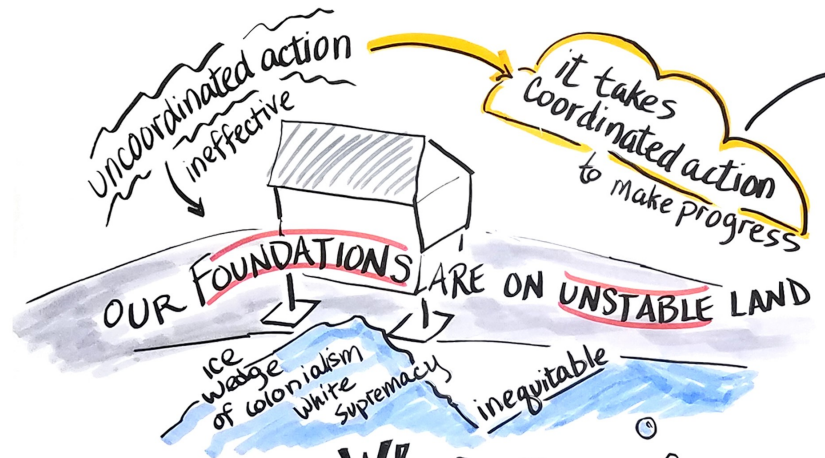 uncoordinated action
ineffective
it takes
Coordinated action
to make progress
OUR FOUNDATIONS ARE ON UNSTABLE LAND
ice
wedge
of colonialism
white
supremacy
inequitable